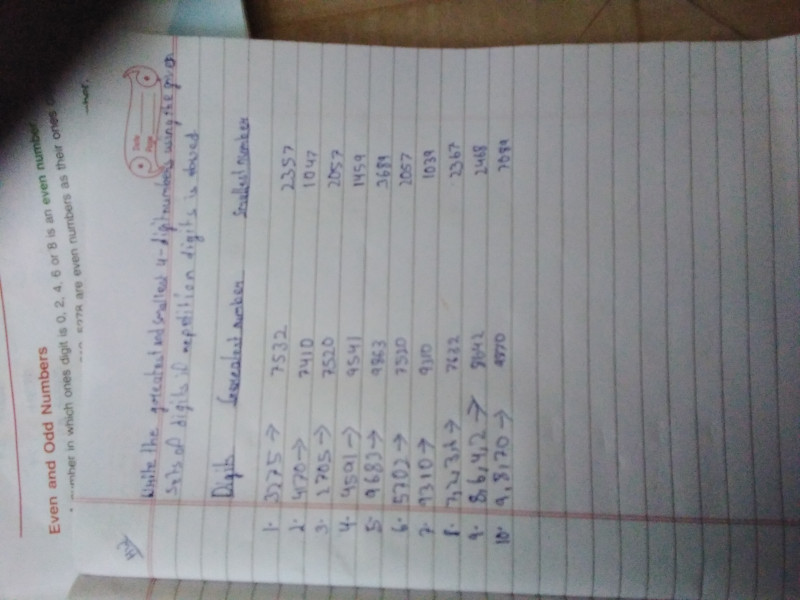 Even and Odd Numbers
number in which ones digit is 0, 2, 4, 6 or 8 is an even number
are even numbers as their ones
Date
Page
Write the greatest and smallest 4-digit numbers using the given
sets of digits if repetition digits is
Digits Greatest number Smallest number
1. 3275 → 7532 2357
2. 4170 → 7410 1047
3. 2705 → 7520 2057
4. 4591 → 9541 1459
5. 9683 → 9863 3689
6. 5702 → 7520 2057
7. 9310 → 9310 1039
8. → 7632 2367
9. 8,6,4,2 → 8642 2468
10. 9,8,70 → 7089